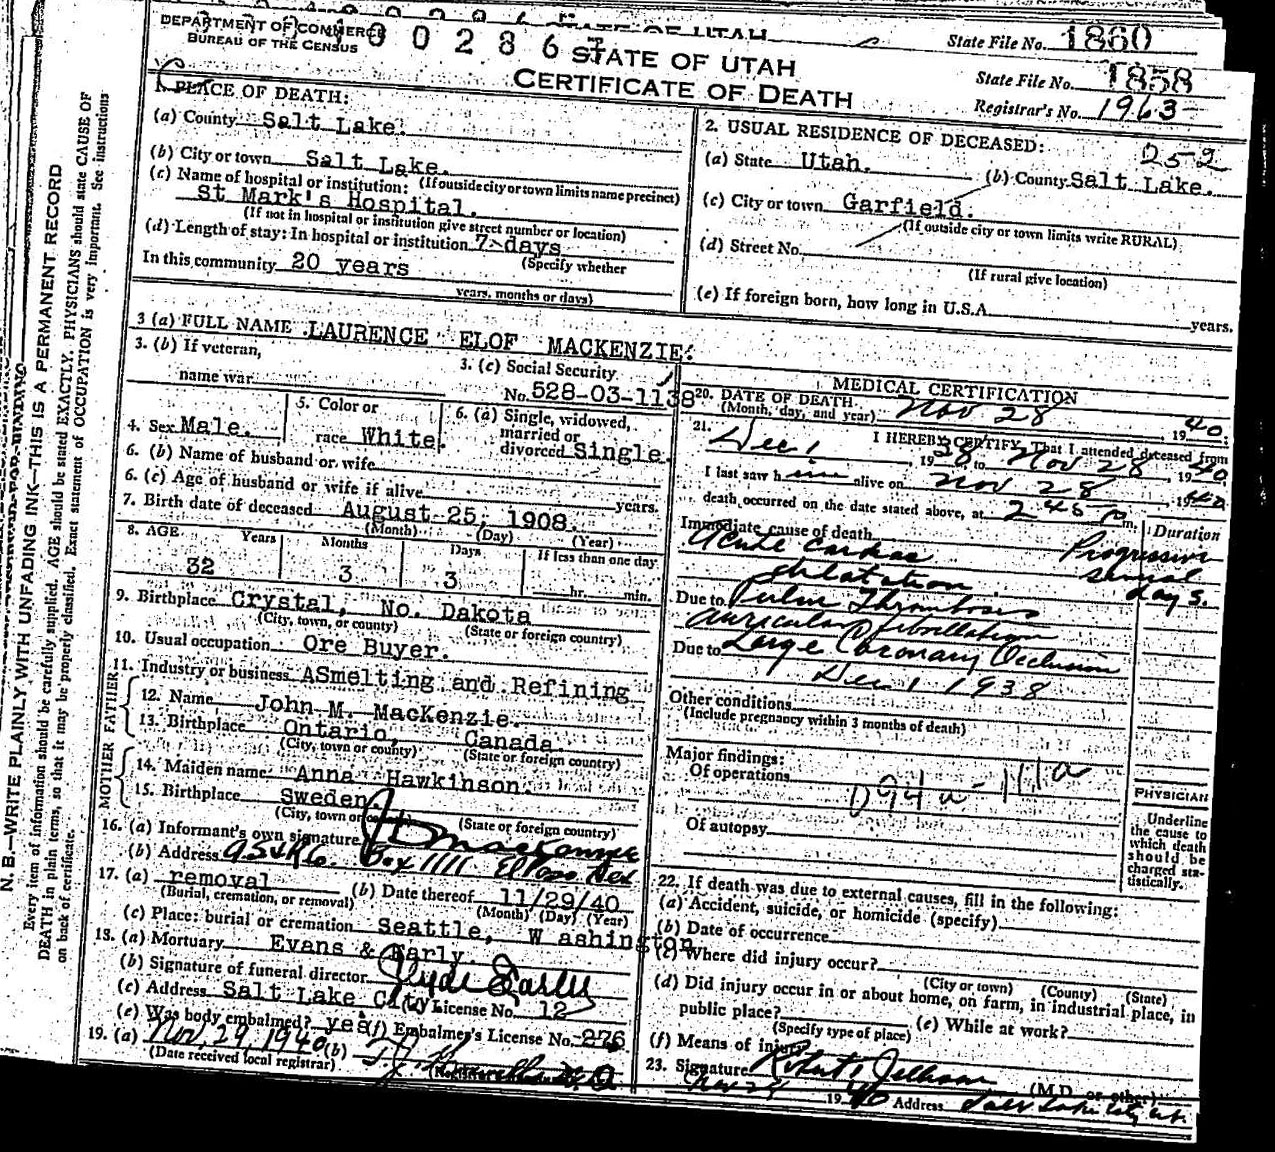 DEPARTMENT OF COMMERCE
BUREAU OF THE CENSUS
STATE OF UTAH
CERTIFICATE OF DEATH
State File No. 1860
State File No. 1858
Registrar's No. 1963
N. B.—WRITE PLAINLY WITH UNFADING INK—THIS IS A PERMANENT RECORD
Every item of information should be carefully supplied. AGE should be stated EXACTLY. PHYSICIANS should state CAUSE OF
DEATH in plain terms, so that it may be properly classified. Exact statement of OCCUPATION is very important. See instructions
on back of certificate.
1. PLACE OF DEATH:
(a) County Salt Lake.
(b) City or town Salt Lake.
(If outside city or town limits name precinct)
(c) Name of hospital or institution:
St Mark's Hospital.
(If not in hospital or institution give street number or location)
(d) Length of stay: In hospital or institution 7 days
(Specify whether
In this community 20 years
years, months or days)
2. USUAL RESIDENCE OF DECEASED:
252
(a) State Utah. (b) County Salt Lake.
(c) City or town Garfield.
(If outside city or town limits write RURAL)
(d) Street No.
(If rural give location)
(e) If foreign born, how long in U.S.A. years.
3 (a) FULL NAME LAURENCE ELOF MACKENZIE.
3. (b) If veteran,
name war
3. (c) Social Security
No. 528-03-1138
4. Sex Male.
5. Color or
race White.
6. (a) Single, widowed,
married or
divorced Single.
6. (b) Name of husband or wife
6. (c) Age of husband or wife if alive years.
7. Birth date of deceased August 25, 1908.
(Month) (Day) (Year)
8. AGE Years Months Days If less than one day
32 3 3 hr. min.
9. Birthplace Crystal, No. Dakota
(City, town, or county) (State or foreign country)
10. Usual occupation Ore Buyer.
11. Industry or business ASmelting and Refining
FATHER
12. Name John M. MacKenzie.
13. Birthplace Ontario, Canada.
(City, town or county) (State or foreign country)
MOTHER
14. Maiden name Anna Hawkinson.
15. Birthplace Sweden.
(City, town or county) (State or foreign country)
16. (a) Informant's own signature MacKenzie
(b) Address Box 1111 El Paso Tex
17. (a) removal (b) Date thereof 11/29/40
(Burial, cremation, or removal) (Month) (Day) (Year)
(c) Place: burial or cremation Seattle, W ashington
18. (a) Mortuary Evans & Early.
(b) Signature of funeral director Clyde Early
(c) Address Salt Lake City License No. 12
(e) Was body embalmed? yes (f) Embalmer's License No. 276
19. (a) Nov. 29, 1940 (b)
(Date received local registrar)
MEDICAL CERTIFICATION
20. DATE OF DEATH
(Month, day, and year) Nov 28, 1940.
21. I HEREBY CERTIFY, That I attended deceased from
Dec 1, 1938 to Nov 28, 1940
I last saw him alive on Nov 28, 1940
death occurred on the date stated above, at 245 p m.
Duration
Immediate cause of death
Acute Cardiac Progressive
dilatation several days.
Due to Pulm Thrombosis
Auricular fibrillation
Due to Large Coronary Occlusion
Dec 1 1938
Other conditions
(Include pregnancy within 3 months of death)
Major findings:
Of operations
094a 111a
Of autopsy
PHYSICIAN
Underline
the cause to
which death
should be
charged sta-
tistically.
22. If death was due to external causes, fill in the following:
(a) Accident, suicide, or homicide (specify)
(b) Date of occurrence
(c) Where did injury occur?
(City or town) (County) (State)
(d) Did injury occur in or about home, on farm, in industrial place, in
public place?
(Specify type of place) (e) While at work?
(f) Means of injury
23. Signature (M.D. or other)
Nov 29 1940 Address Salt Lake City Ut.